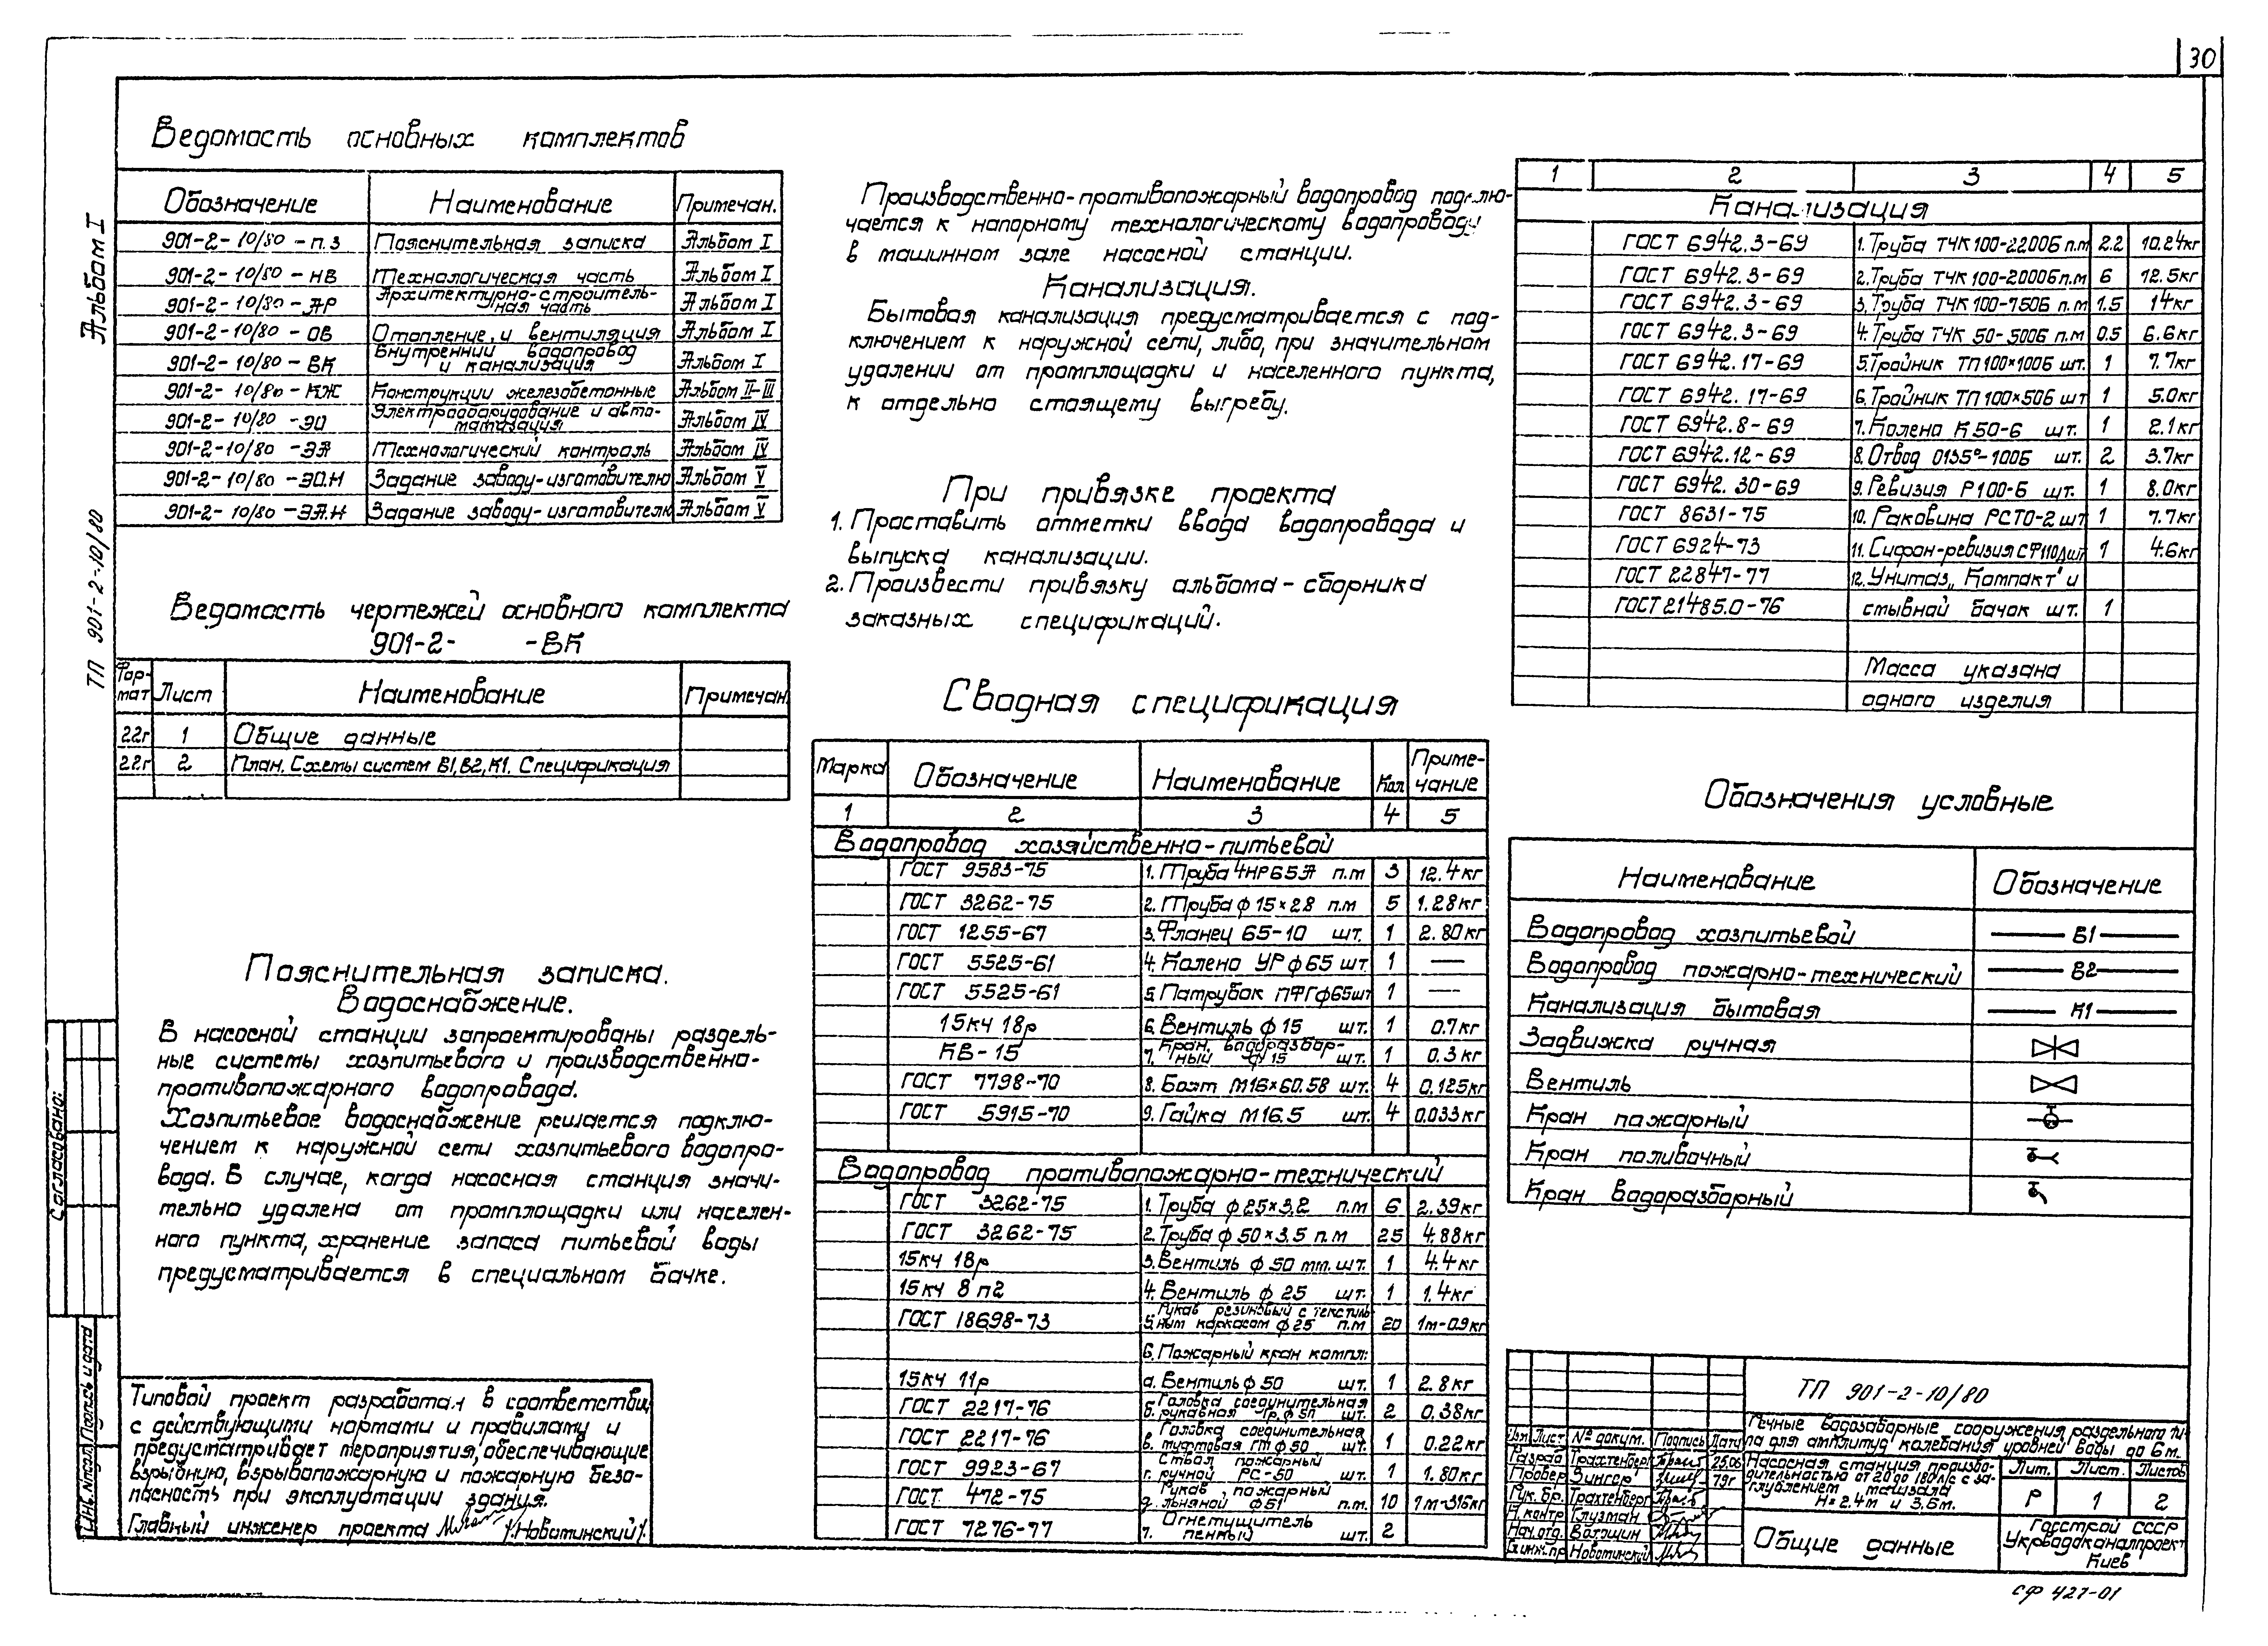 30
Альбом I
ТП 901-2-10/80
Ведомость основных комплектов
Обозначение Наименование Примечан.
901-2-10/80-п.з Пояснительная записка Альбом I
901-2-10/80-НВ Технологическая часть Альбом I
901-2-10/80-АР Архитектурно-строитель-
ная часть Альбом I
901-2-10/80-ОВ Отопление, и вентиляция Альбом I
901-2-10/80-ВК Внутренний водопровод
и канализация Альбом I
901-2-10/80-КЖ Конструкции железобетонные Альбом II-III
901-2-10/80-ЭО Электрооборудование и авто-
матизация Альбом IV
901-2-10/80-ЭА Технологический контроль Альбом IV
901-2-10/80-ЭО.Н Задание заводу-изготовителю Альбом V
901-2-10/80-ЭА.Н Задание заводу-изготовителю Альбом V
Ведомость чертежей основного комплекта
901-2- -ВК
Фор-
мат Лист Наименование Примечан.
22г 1 Общие данные
22г 2 План. Схемы систем В1,В2,К1. Спецификация
Пояснительная записка.
Водоснабжение.
В насосной станции запроектированы раздель-
ные системы хозпитьевого и производственно-
противопожарного водопровода.
Хозпитьевое водоснабжение решается подклю-
чением к наружной сети хозпитьевого водопро-
вода. В случае, когда насосная станция значи-
тельно удалена от промплощадки или населен-
ного пункта, хранение запаса питьевой воды
предусматривается в специальном бачке.
Согласовано:
Инв.№подл. Подпись и дата
Типовой проект разработан в соответствии
с действующими нормами и правилами и
предусматривает мероприятия, обеспечивающие
взрывную, взрывопожарную и пожарную безо-
пасность при эксплуатации здания.
Главный инженер проекта /Новотинский/.
Производственно-противопожарный водопровод подклю-
чается к напорному технологическому водопроводу
в машинном зале насосной станции.
Канализация.
Бытовая канализация предусматривается с под-
ключением к наружной сети, либо, при значительном
удалении от промплощадки и населенного пункта,
к отдельно стоящему выгребу.
При привязке проекта
1. Проставить отметки ввода водопровода и
выпуска канализации.
2. Произвести привязку альбома-сборника
заказных спецификаций.
Сводная спецификация
Марка Обозначение Наименование Кол Приме-
чание
1 2 3 4 5
Водопровод хозяйственно-питьевой
ГОСТ 9583-75 1. Труба ЧНР65А п.м 3 12.4кг
ГОСТ 3262-75 2. Труба ф 15×2.8 п.м 5 1.28кг
ГОСТ 1255-67 3. Фланец 65-10 шт. 1 2.80кг
ГОСТ 5525-61 4. Колено УР ф65 шт 1 —
ГОСТ 5525-61 5. Патрубок ПФГф65шт 1 —
15кч 18р 6. Вентиль ф 15 шт. 1 0.7кг
КВ-15 7. Кран водоразбор-
ный ф 15 шт. 1 0.3кг
ГОСТ 7798-70 8. Болт М16×60.58 шт. 4 0.125кг
ГОСТ 5915-70 9. Гайка М16.5 шт. 4 0.033кг
Водопровод противопожарно-технический
ГОСТ 3262-75 1. Труба ф 25×3.2 п.м 6 2.39кг
ГОСТ 3262-75 2. Труба ф 50×3.5 п.м 25 4.88кг
15кч 18р 3. Вентиль ф 50 мм. шт. 1 4.4кг
15кч 8п2 4. Вентиль ф 25 шт. 1 1.4кг
ГОСТ 18698-73 5. Рукав резиновый с текстиль-
ным каркасом ф 25 п.м 20 1м-0.9кг
6. Пожарный кран компл:
15кч 11р а. Вентиль ф 50 шт. 1 2.8кг
ГОСТ 2217-76 б. Головка соединительная
рукавная Гр.ф 50 шт. 2 0.38кг
ГОСТ 2217-76 в. Головка соединительная
муфтовая ГМ ф 50 шт. 1 0.22кг
ГОСТ 9923-67 г. Ствол пожарный
ручной РС-50 шт. 1 1.80кг
ГОСТ 472-75 д. Рукав пожарный
льняной ф51 п.м. 10 1м-316кг
ГОСТ 7276-77 7. Огнетушитель
пенный шт. 2
1 2 3 4 5
Канализация
ГОСТ 6942.3-69 1. Труба ТЧК 100-2200Б п.м 2.2 10.24кг
ГОСТ 6942.3-69 2. Труба ТЧК 100-2000Б п.м 6 12.5кг
ГОСТ 6942.3-69 3. Труба ТЧК 100-750Б п.м 1.5 14кг
ГОСТ 6942.3-69 4. Труба ТЧК 50-500Б п.м 0.5 6.6кг
ГОСТ 6942.17-69 5. Тройник ТП 100×100Б шт. 1 7.7кг
ГОСТ 6942.17-69 6. Тройник ТП 100×50Б шт 1 5.0кг
ГОСТ 6942.8-69 7. Колено К 50-Б шт. 1 2.1кг
ГОСТ 6942.12-69 8. Отвод О135°-100Б шт. 2 3.7кг
ГОСТ 6942.30-69 9. Ревизия Р100-Б шт. 1 8.0кг
ГОСТ 8631-75 10. Раковина РСТО-2 шт 1 7.7кг
ГОСТ 6924-73 11. Сифон-ревизия СФ110Дшт 1 4.6кг
ГОСТ 22847-77 12. Унитаз „Компакт" и
ГОСТ 21485.0-76 смывной бачок шт. 1
Масса указана
одного изделия
Обозначения условные
Наименование Обозначение
Водопровод хозпитьевой В1
Водопровод пожарно-технический В2
Канализация бытовая К1
Задвижка ручная
Вентиль
Кран пожарный
Кран поливочный
Кран водоразборный
ТП 901-2-10/80
Речные водозаборные сооружения раздельного ти-
па для амплитуд колебания уровней воды до 6м.
Изм Лист № докум. Подпись Дата
Разраб Трахтенберг 25.06
Провер Зингер 79г
Рук.бр. Трахтенберг
Н.контр Глузман
Нач.отд. Волошин
Гл.инж.пр Новотинский
Насосная станция произво-
дительностью от 20 до 180 л/с с за-
глублением машзала
Н=2.4м и 3.6м.
Лит. Лист. Листов
Р 1 2
Общие данные
Госстрой СССР
Укрводоканалпроект
Киев
сф 427-01